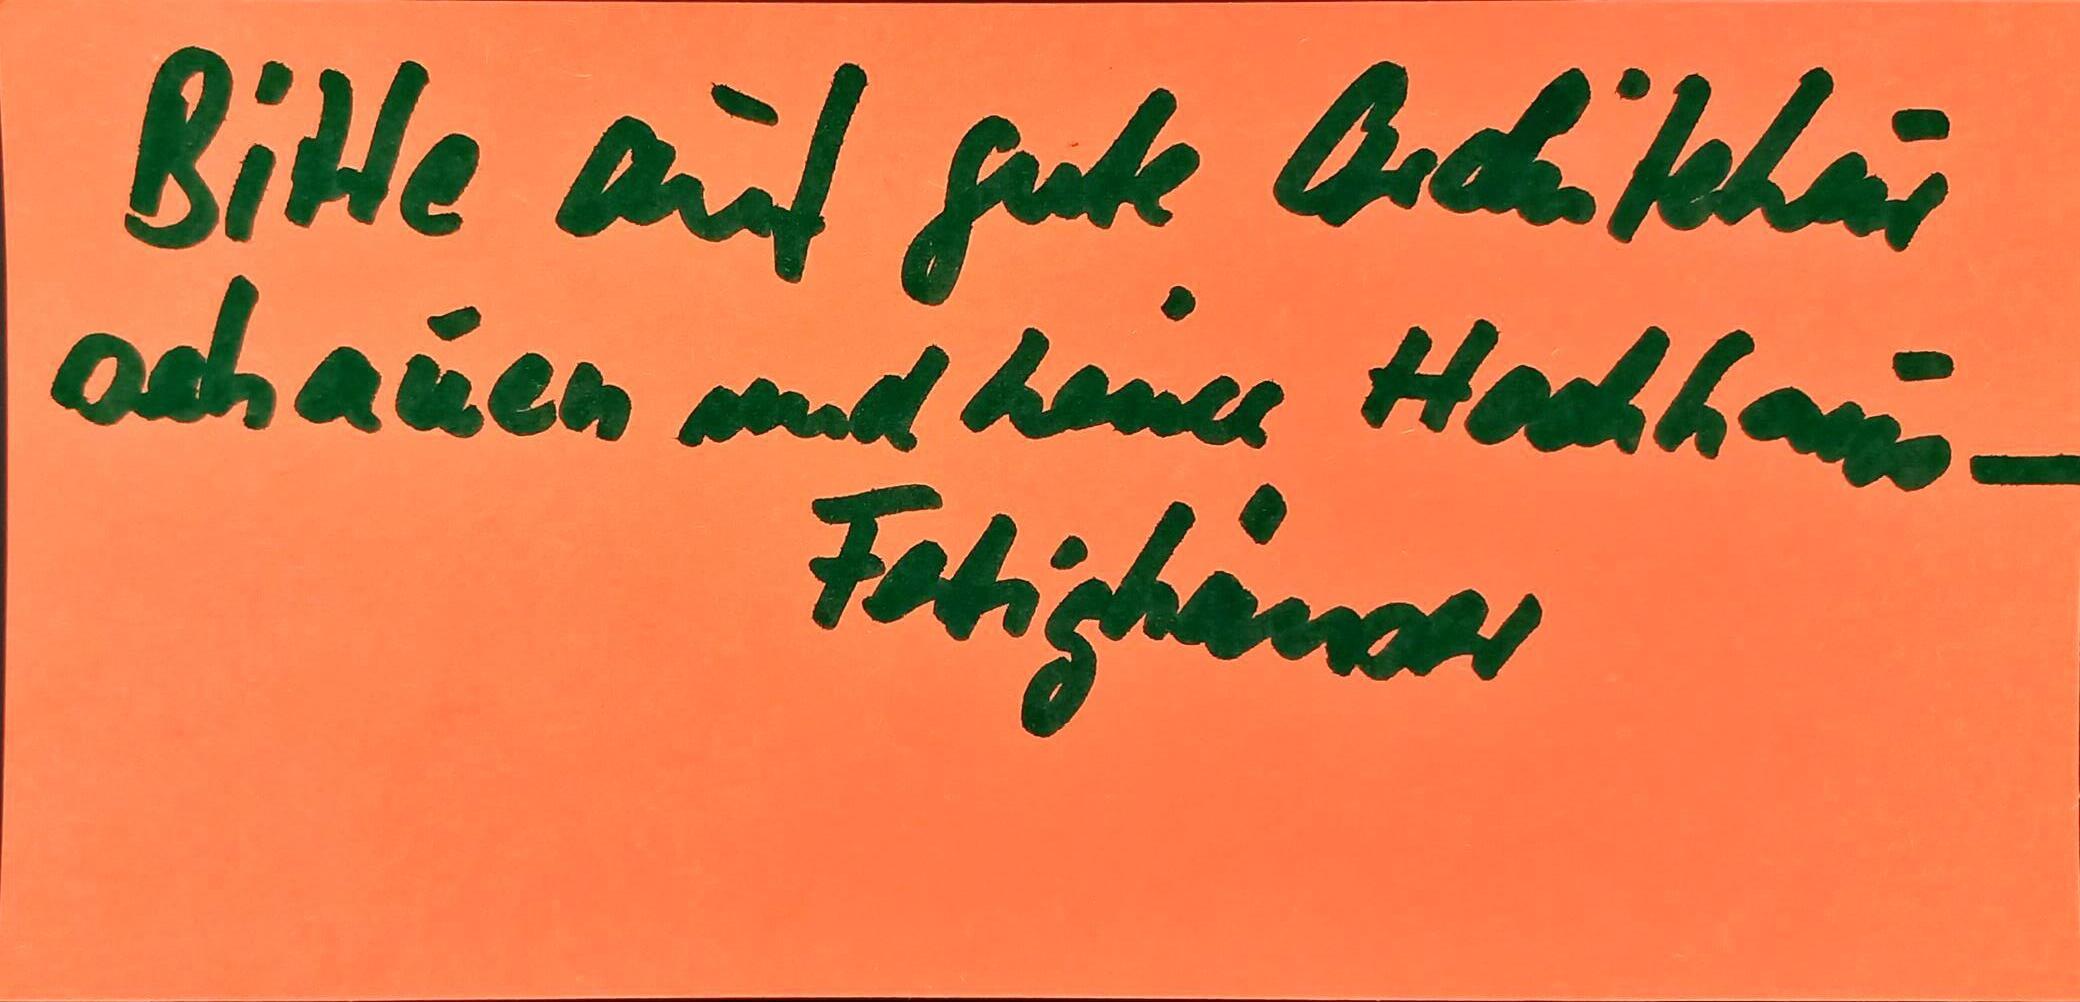 Bitte auf gute Architektur
schauen und keine Hochhaus-
Fertighäuser